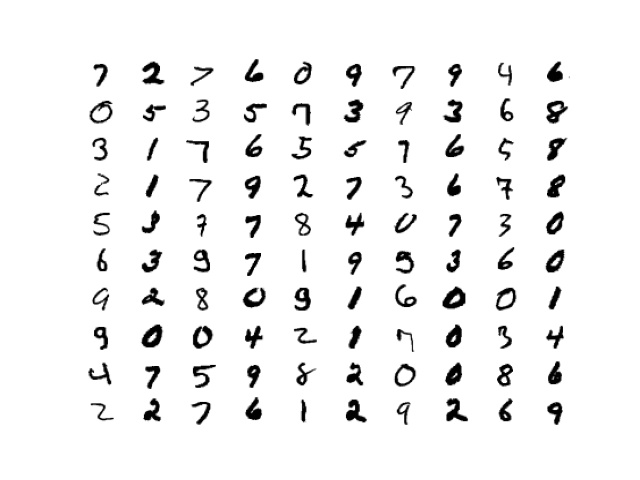 7 2 7 6 0 9 7 9 4 6
0 5 3 5 7 3 9 3 6 8
3 1 7 6 5 5 7 6 5 8
2 1 7 9 2 7 3 6 7 8
5 3 7 7 8 4 0 7 3 0
6 3 9 7 1 9 9 3 6 0
9 2 8 0 9 1 6 0 0 1
9 0 0 4 2 1 7 0 3 4
4 7 5 9 8 2 0 0 8 6
2 2 7 6 1 2 9 2 6 9